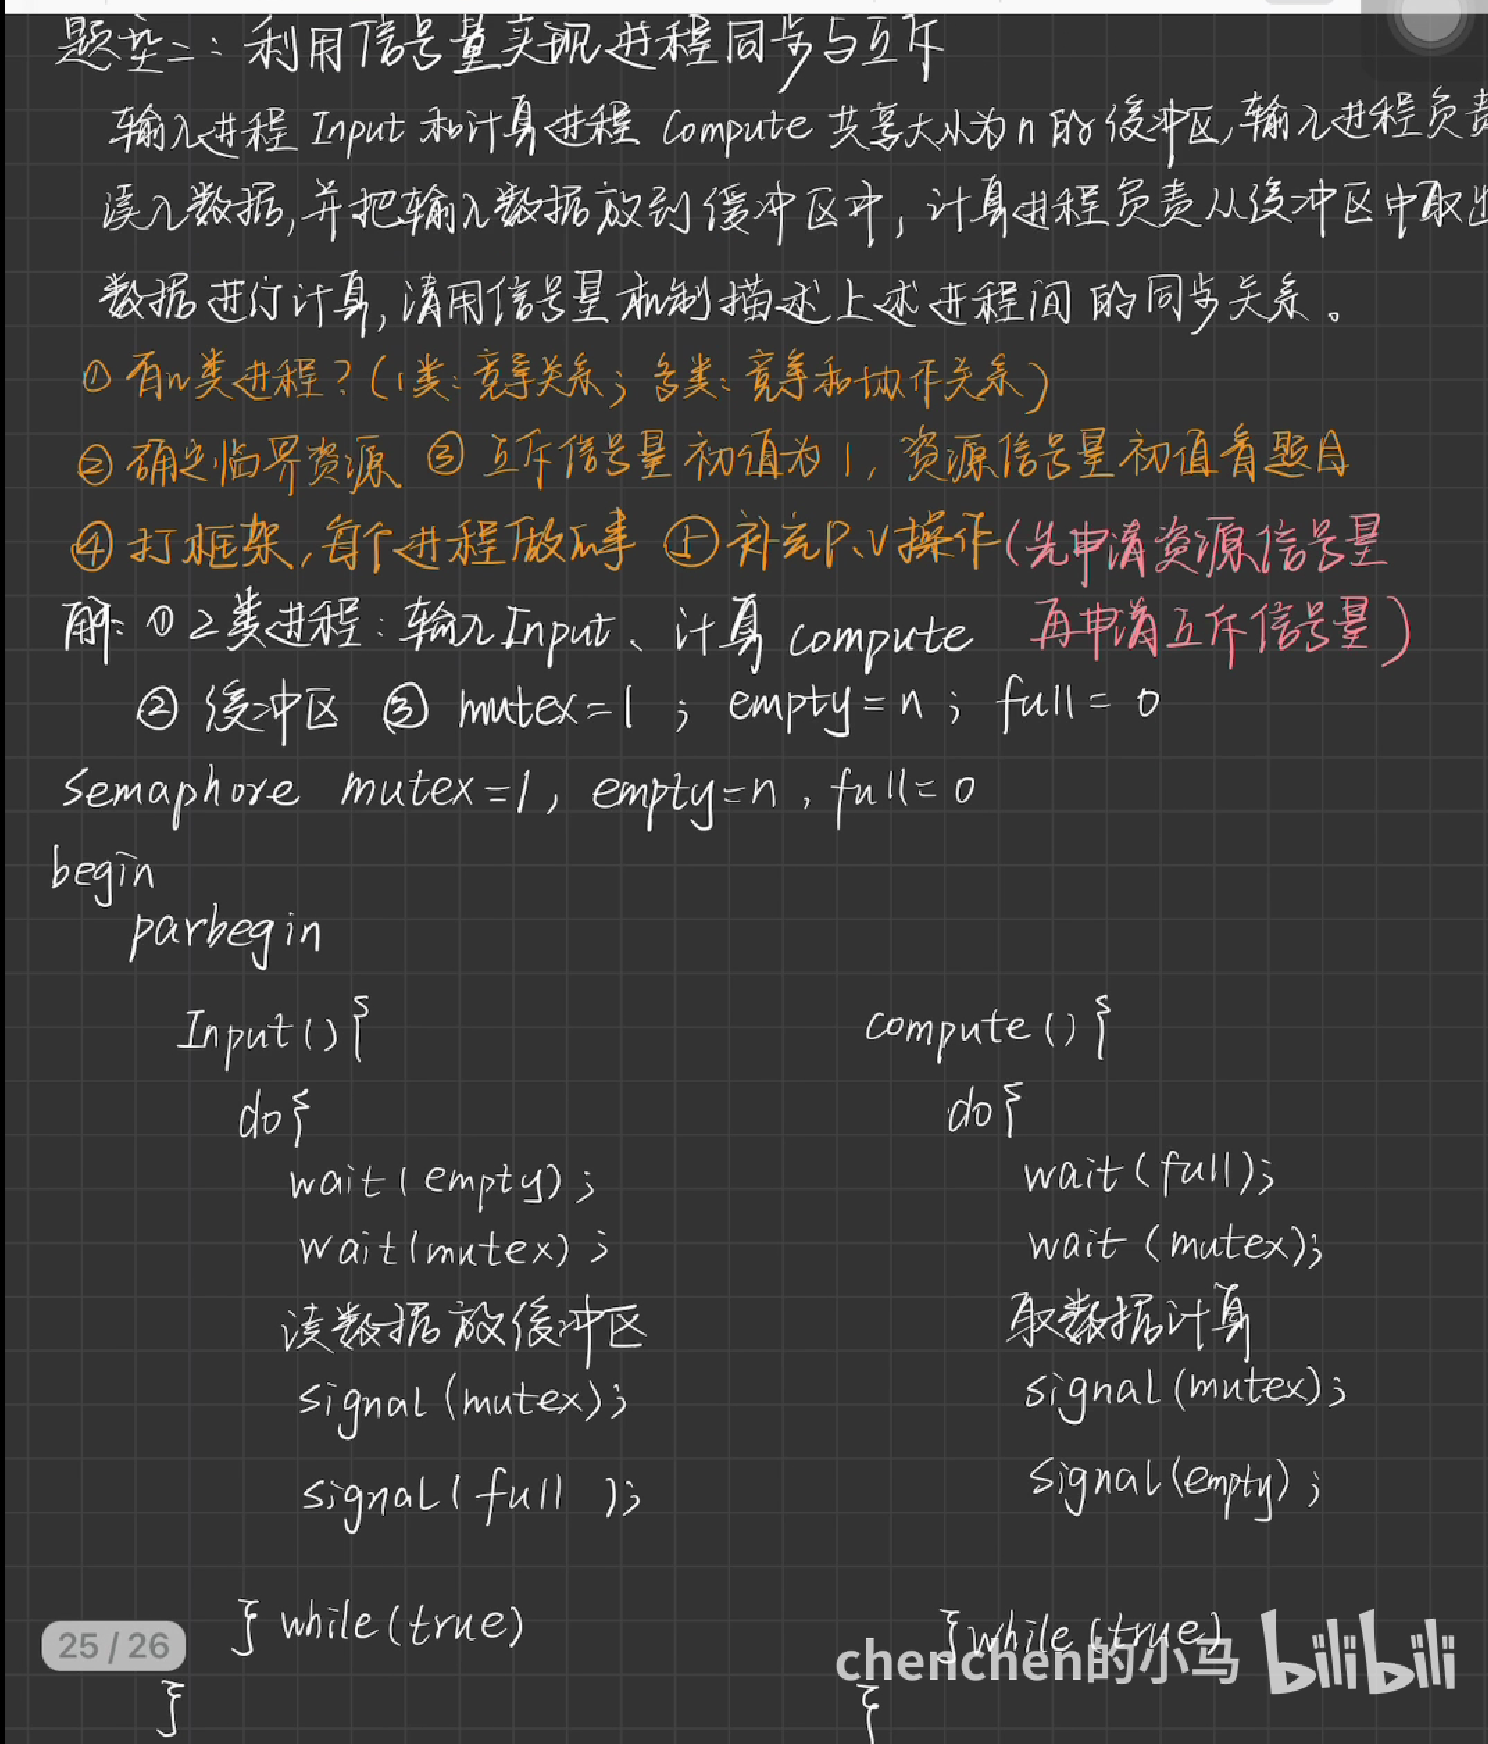 题型二：利用信号量实现进程同步与互斥
输入进程 Input 和计算进程 Compute 共享大小为n的缓冲区,输入进程负责
读入数据,并把输入数据放到缓冲区中, 计算进程负责从缓冲区中取出
数据进行计算,请用信号量机制描述上述进程间的同步关系。
① 有n类进程?(1类:竞争关系; 多类:竞争和协作关系)
② 确定临界资源 ③ 互斥信号量初值为1, 资源信号量初值看题目
④ 打框架,每个进程做的事 ⑤ 补充P、V操作(先申请资源信号量
再申请互斥信号量)
解: ① 2类进程: 输入Input、计算 compute
② 缓冲区 ③ mutex=1 ; empty=n ; full= 0
Semaphore mutex=1, empty=n , full=0
begin
parbegin
Input(){
do{
wait(empty);
wait(mutex);
读数据放缓冲区
signal(mutex);
signal( full );
} while(true)
}
compute(){
do{
wait(full);
wait(mutex);
取数据计算
signal(mutex);
signal(empty);
}while(true)
}
25 / 26
chenchen的小马 bilibili